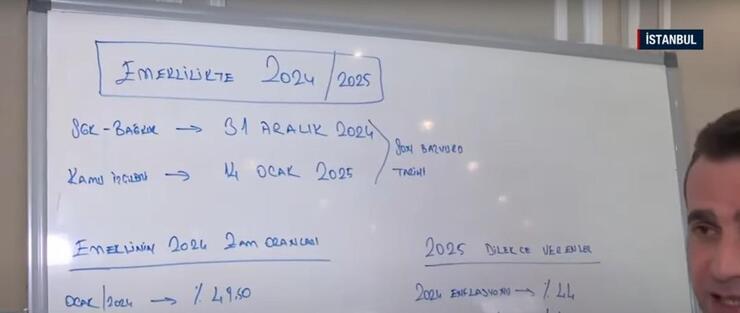 İSTANBUL
EMEKLİLİKTE 2024/2025
SGK-BAĞKUR → 31 ARALIK 2024
SON BAŞVURU
KAMU İŞÇİSİ → 14 OCAK 2025
TARİHİ
EMEKLİNİN 2024 ZAM ORANLARI
OCAK/2024 → % 49.50
2025 DİLEKÇE VERENLER
2024 ENFLASYONU → % 44